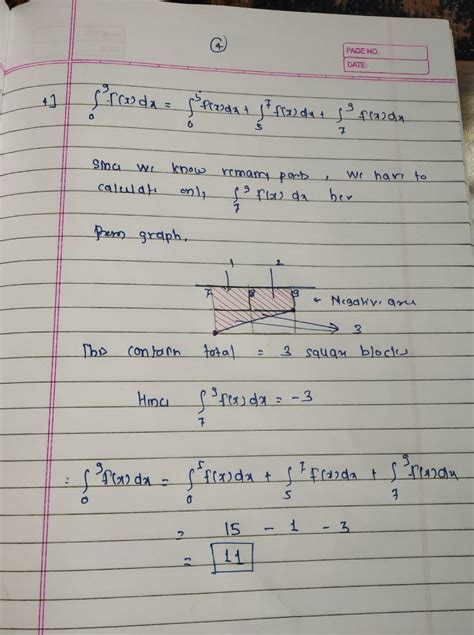 ④
PAGE NO.
DATE:
∫₀⁹ f(x)dx = ∫₀⁵ f(x)dx + ∫₅⁷ f(x)dx + ∫₇⁹ f(x)dx
Since we know remany parts, we have to
calculate only ∫₇⁹ f(x) dx her
From graph,
1 2
7 8 9
← Negative area
3
This contain total = 3 square blocks
Hence ∫₇⁹ f(x)dx = -3
∴ ∫₀⁹ f(x)dx = ∫₀⁵ f(x)dx + ∫₅⁷ f(x)dx + ∫₇⁹ f(x)dx
= 15 - 1 - 3
= 11